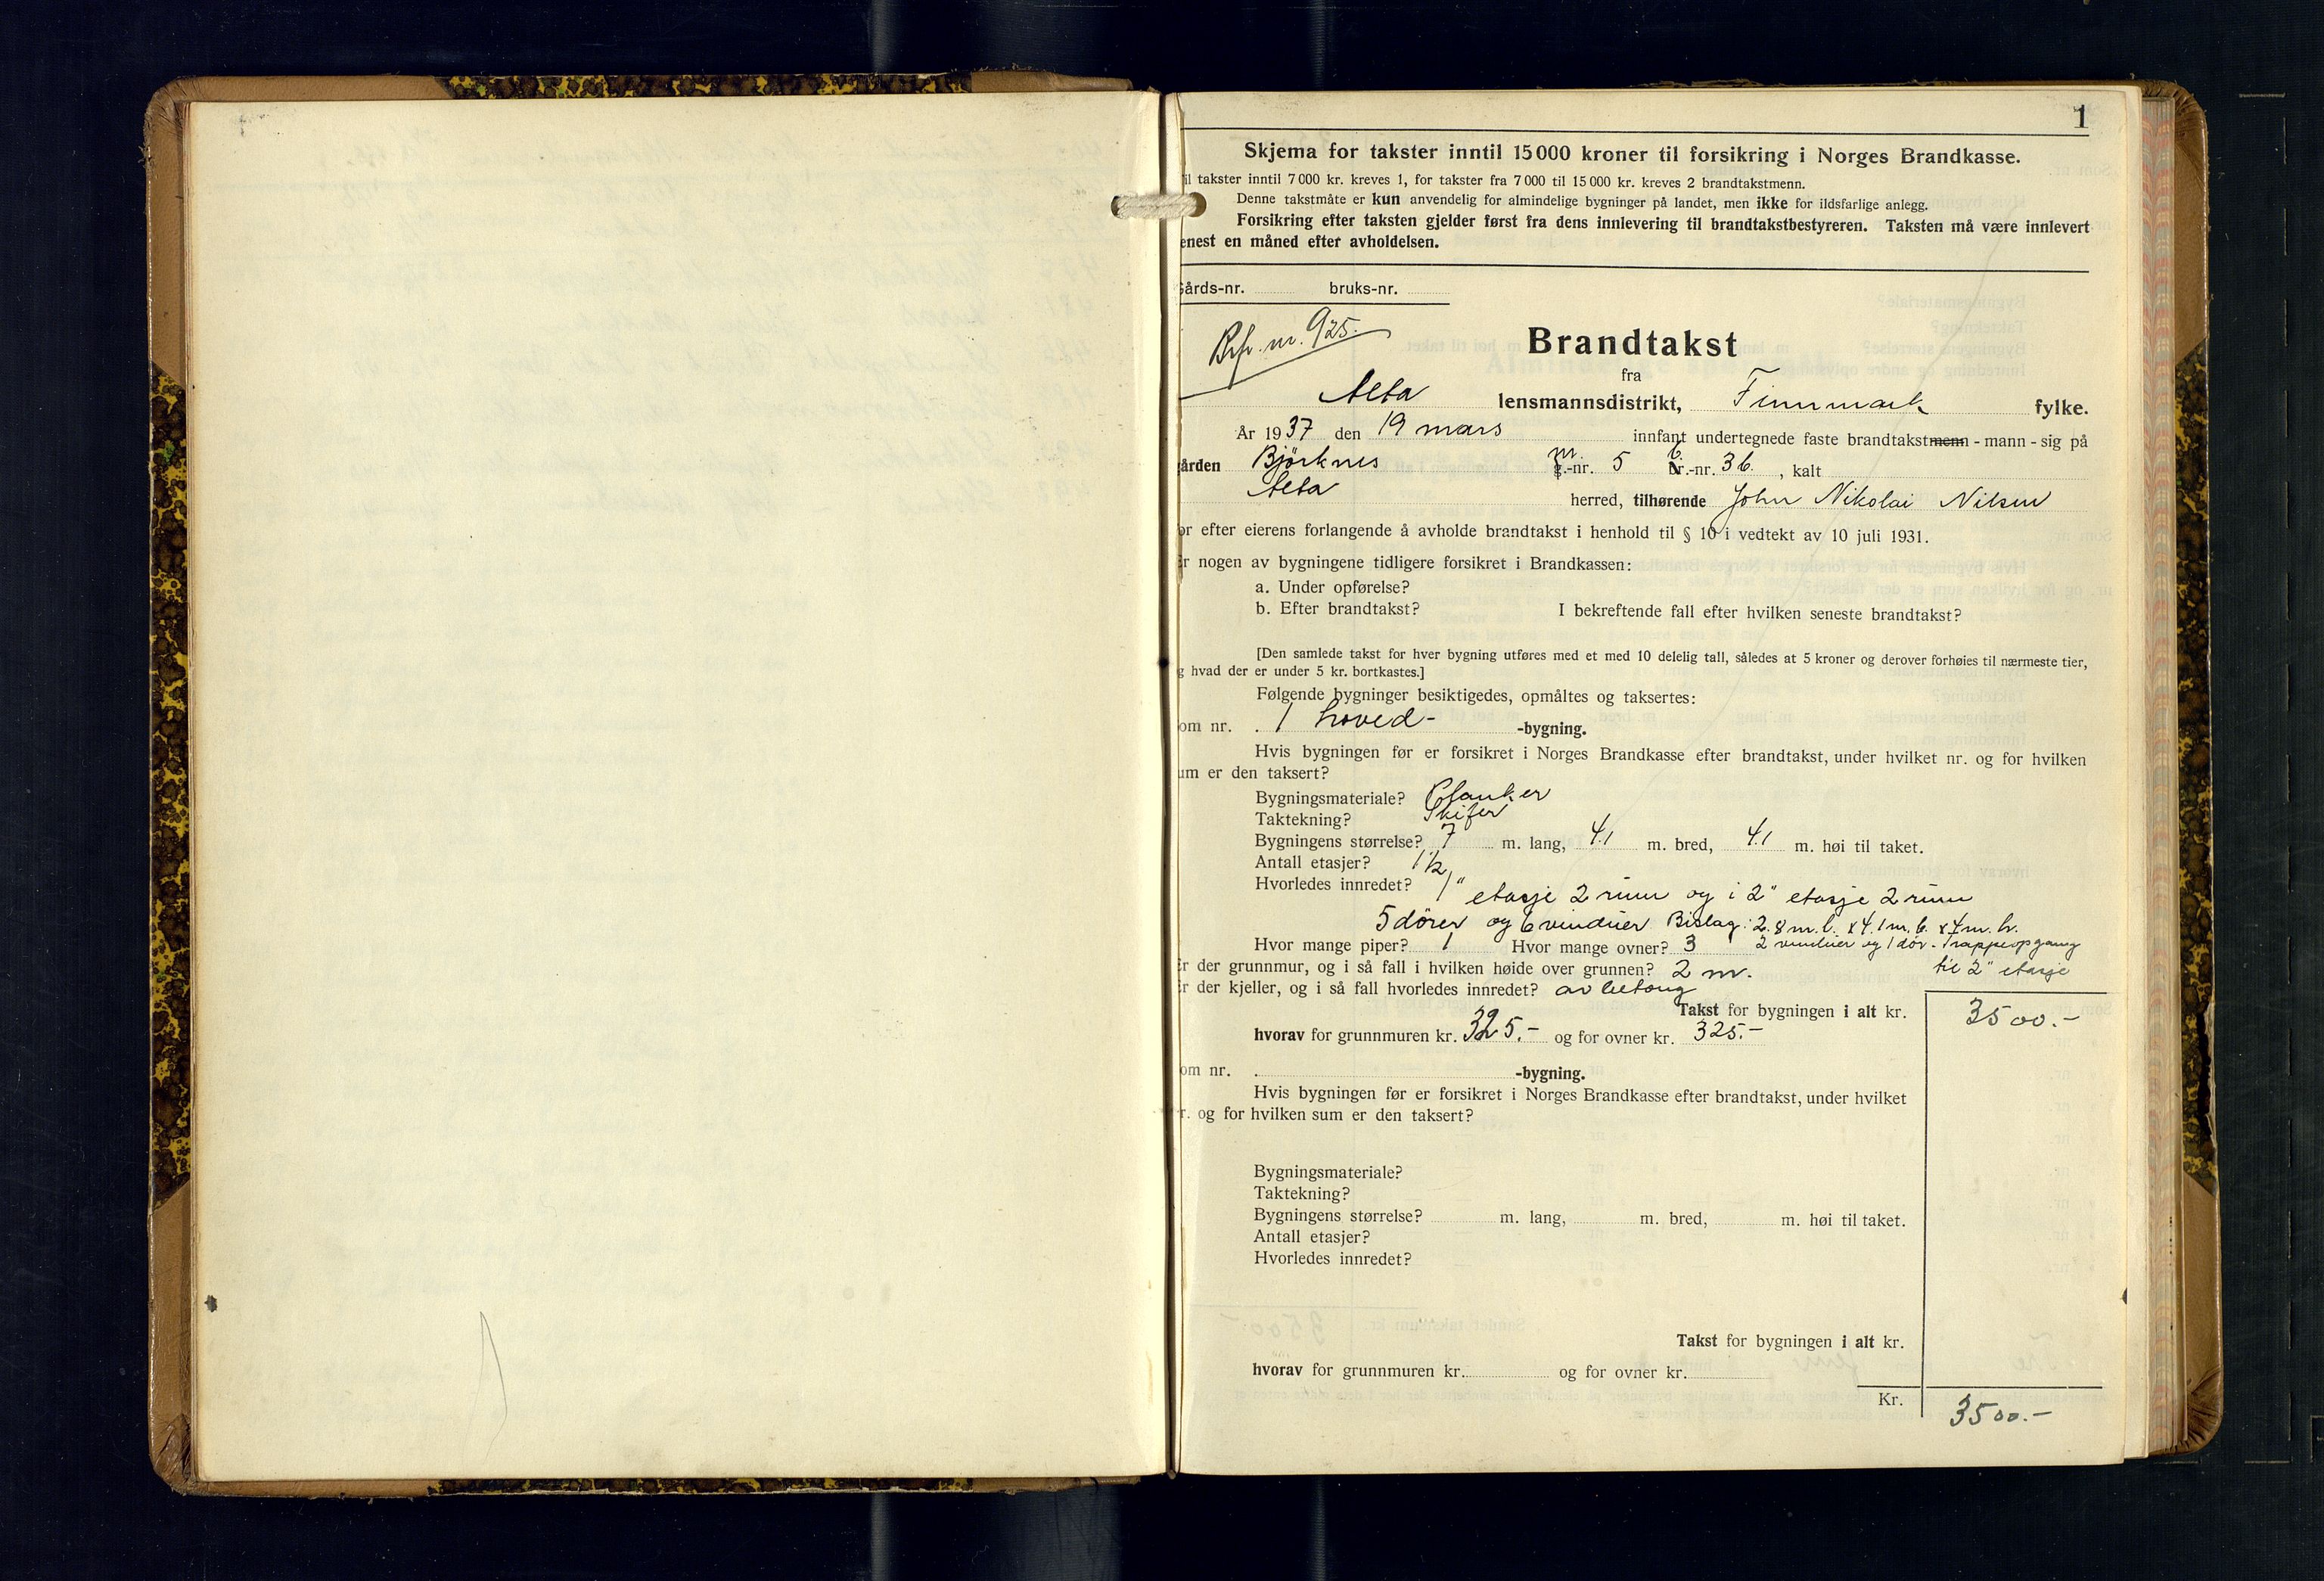 1
Skjema for takster inntil 15000 kroner til forsikring i Norges Brandkasse.
il takster inntil 7 000 kr. kreves 1, for takster fra 7 000 til 15 000 kr. kreves 2 brandtakstmenn.
Denne takstmåte er kun anvendelig for almindelige bygninger på landet, men ikke for ildsfarlige anlegg.
Forsikring efter taksten gjelder først fra dens innlevering til brandtakstbestyreren. Taksten må være innlevert
enest en måned efter avholdelsen.
Gårds-nr. bruks-nr.
Brf. nr. 925.
Brandtakst
fra
Alta lensmannsdistrikt, Finnmark fylke.
År 1937 den 19 mars innfant undertegnede faste brandtakstmenn - mann - sig på
ården Björknes m.-nr. 5 b.-nr. 36. , kalt
Alta herred, tilhørende John Nikolai Nilsen
or efter eierens forlangende å avholde brandtakst i henhold til § 10 i vedtekt av 10 juli 1931.
r nogen av bygningene tidligere forsikret i Brandkassen:
a. Under opførelse?
b. Efter brandtakst? I bekreftende fall efter hvilken seneste brandtakst?
[Den samlede takst for hver bygning utføres med et med 10 delelig tall, således at 5 kroner og derover forhøies til nærmeste tier,
g hvad der er under 5 kr. bortkastes.]
Følgende bygninger besiktigedes, opmåltes og taksertes:
om nr. . 1 hoved- -bygning.
Hvis bygningen før er forsikret i Norges Brandkasse efter brandtakst, under hvilket nr. og for hvilken
um er den taksert?
Bygningsmateriale? Planker
Taktekning? Skifer
Bygningens størrelse? 7 m. lang, 4.1 m. bred, 4.1 m. høi til taket.
Antall etasjer? 1 1/2
Hvorledes innredet? 1" etasje 2 rum og i 2" etasje 2 rum
5 dörer og 6 vinduer Bislag: 2.8 m. l. x 4.1 m. b. x 4 m. h.
Hvor mange piper? 1 Hvor mange ovner? 3 2 vinduer og 1 dör - Trappeopgang
r der grunnmur, og i så fall i hvilken høide over grunnen? 2 m. til 2" etasje
r der kjeller, og i så fall hvorledes innredet? av betong
Takst for bygningen i alt kr. 3500.-
hvorav for grunnmuren kr. 325.- og for ovner kr. 325.-
om nr. . -bygning.
Hvis bygningen før er forsikret i Norges Brandkasse efter brandtakst, under hvilket
r. og for hvilken sum er den taksert?
Bygningsmateriale?
Taktekning?
Bygningens størrelse? m. lang, m. bred, m. høi til taket.
Antall etasjer?
Hvorledes innredet?
Takst for bygningen i alt kr.
hvorav for grunnmuren kr. og for ovner kr.
Kr. 3500.-